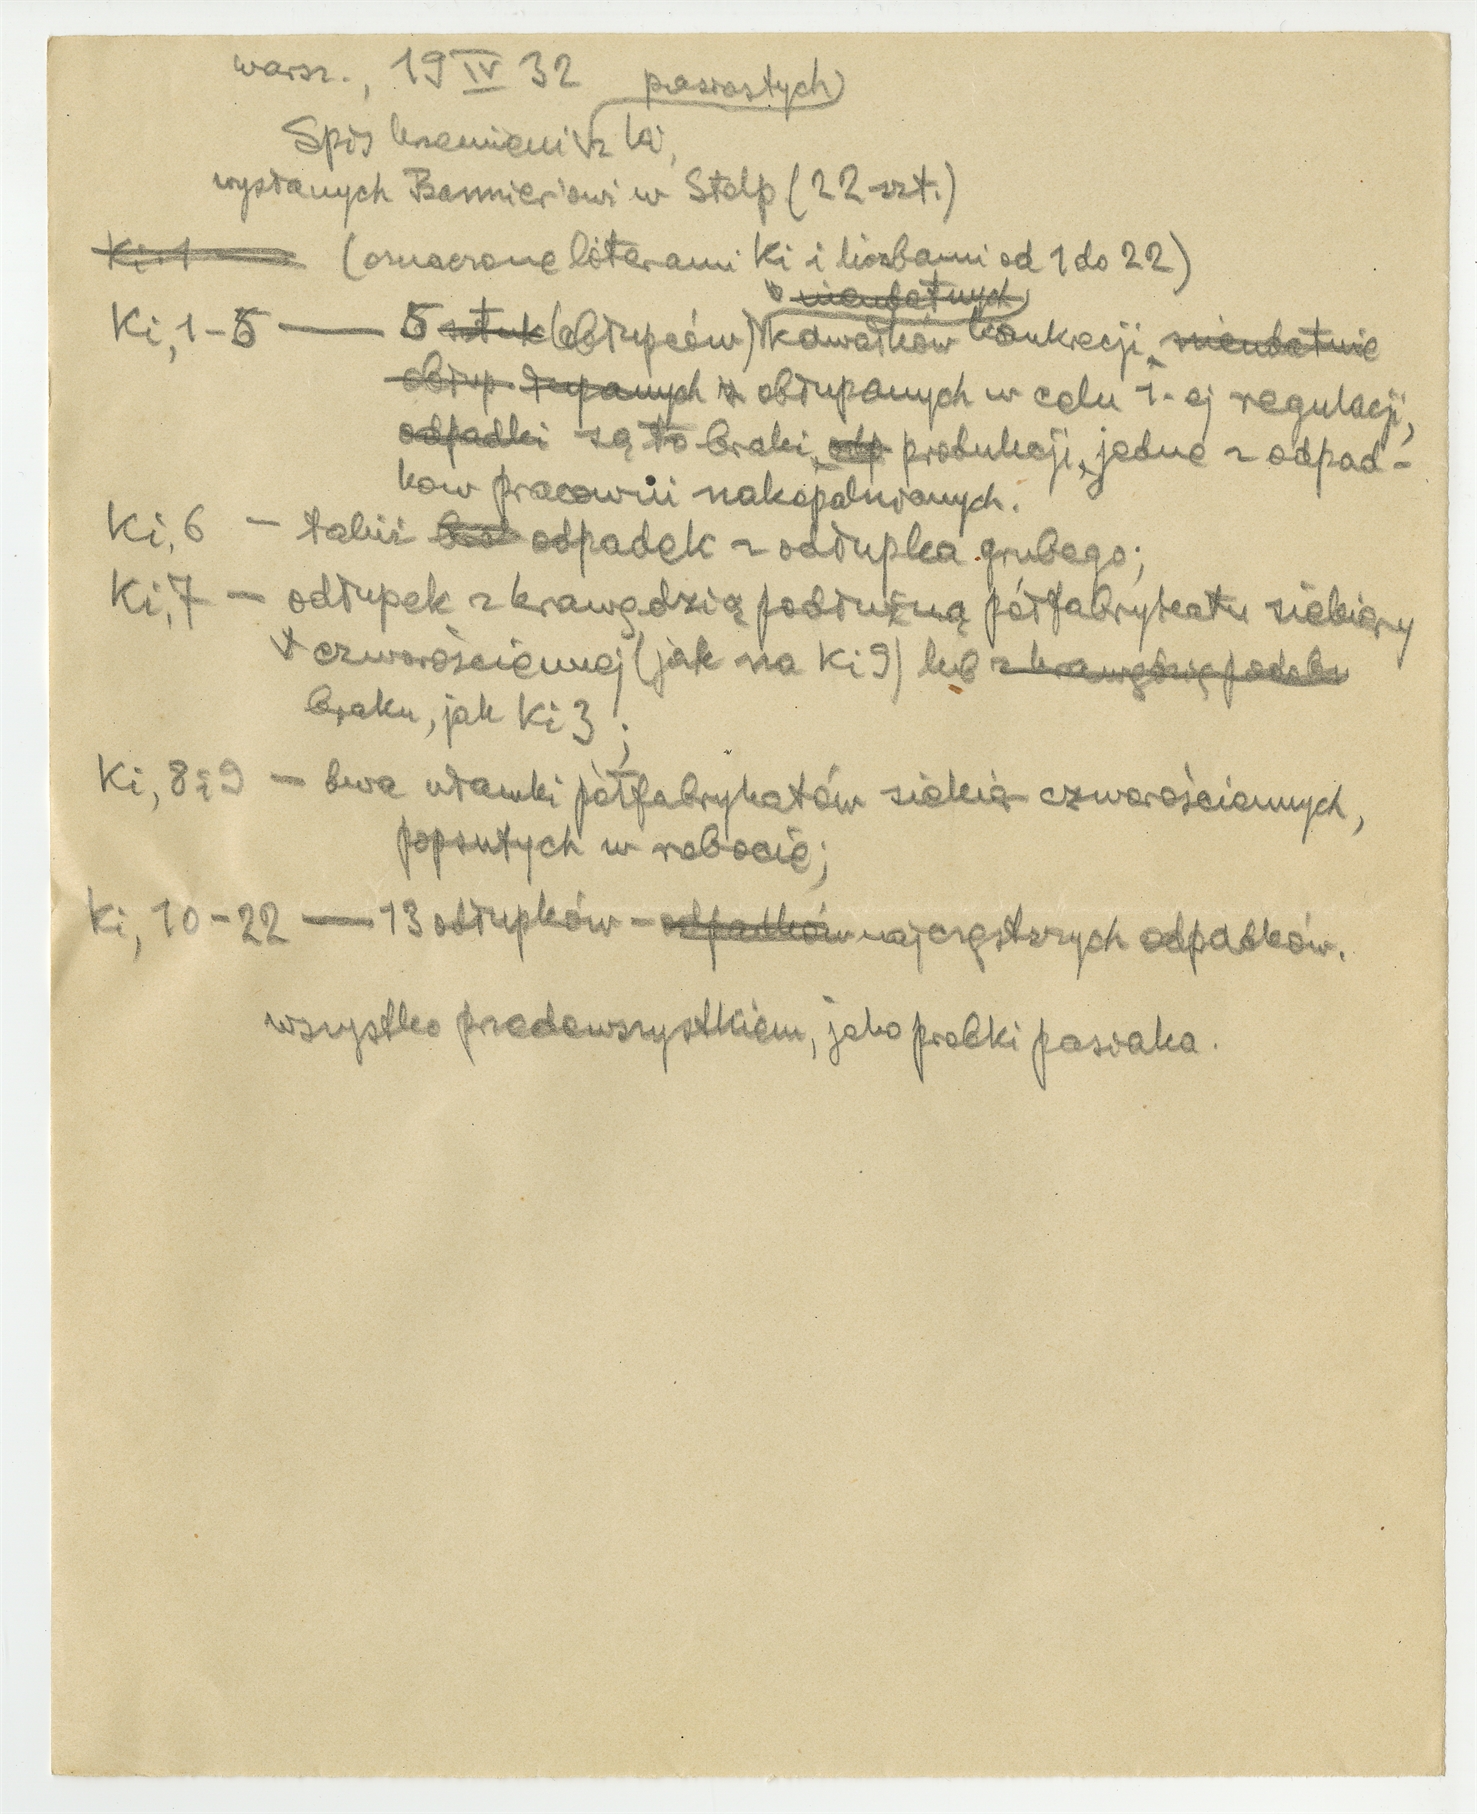 warsz., 19 IV 32
pasiastych
Spis krzemieni z Ki,
wysłanych Bammler'owi w Stolp (22 szt.)
Ki. 1 (oznaczone literami Ki i liczbami od 1 do 22)
nieudatnych
Ki, 1-5 — 5 sztuk (obłupców) kawałków konkrecji, nieudatnie
obłup. łupanych obłupanych w celu 1-ej regulacji,
odpadki są to braki, odp produkcji, jedne z odpad-
ków pracowni nakopalnianych.
Ki, 6 — takiż odpadek z odłupka grubego;
Ki, 7 — odłupek z krawędzią podłużną półfabrykatu siekiery
czworościennej (jak na Ki 9) lub z krawędzią podobn
braku, jak Ki 3;
Ki, 8 i 9 — dwa ułamki półfabrykatów siekier czworościennych,
popsutych w robocie;
Ki, 10-22 — 13 odłupków – odpadków najczęstszych odpadków.
wszystko przedewszystkiem, jako próbki pasiaka.